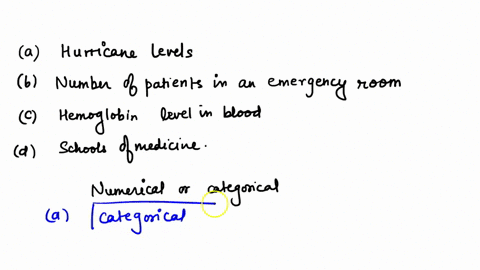 (a) Hurricane levels
(b) Number of patients in an emergency room
(c) Hemoglobin level in blood
(d) Schools of medicine.
Numerical or categorical
(a) categorical